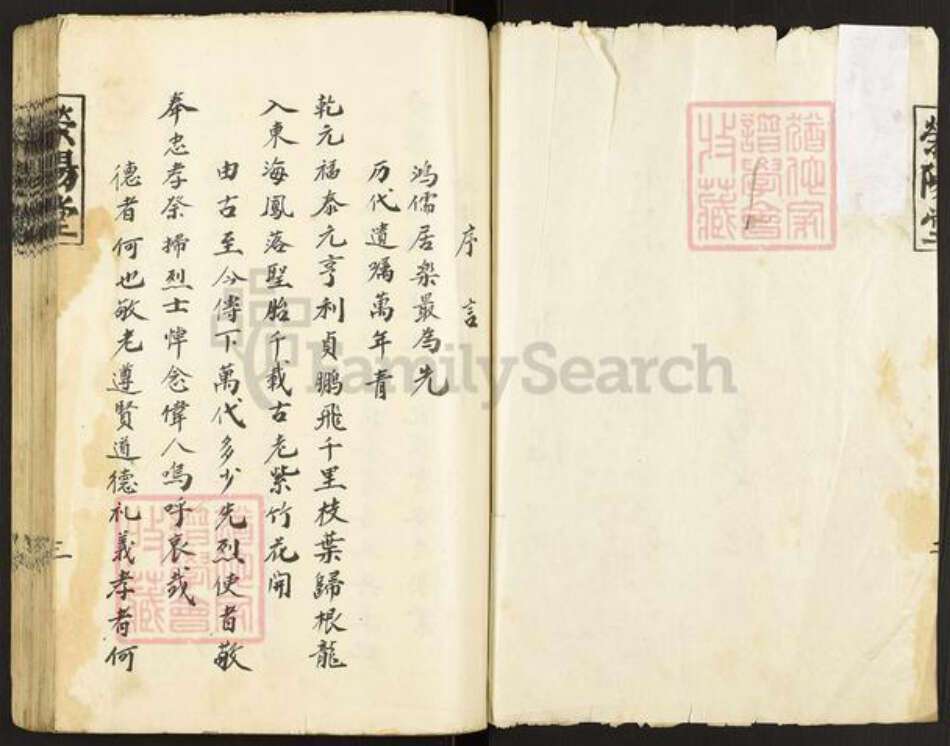 序言
鸿儒居樂最為先
历代遺嘱萬年青
乾元福泰元亨利貞鵬飛千里枝葉歸根龍
入東海鳳落聖胎千載古老紫竹花開
由古至今傳下萬代多少先烈使者敬
奉忠孝祭掃烈士悼念偉人嗚呼哀哉
德者何也敬老遵賢道德礼義孝者何
二
FamilySearch